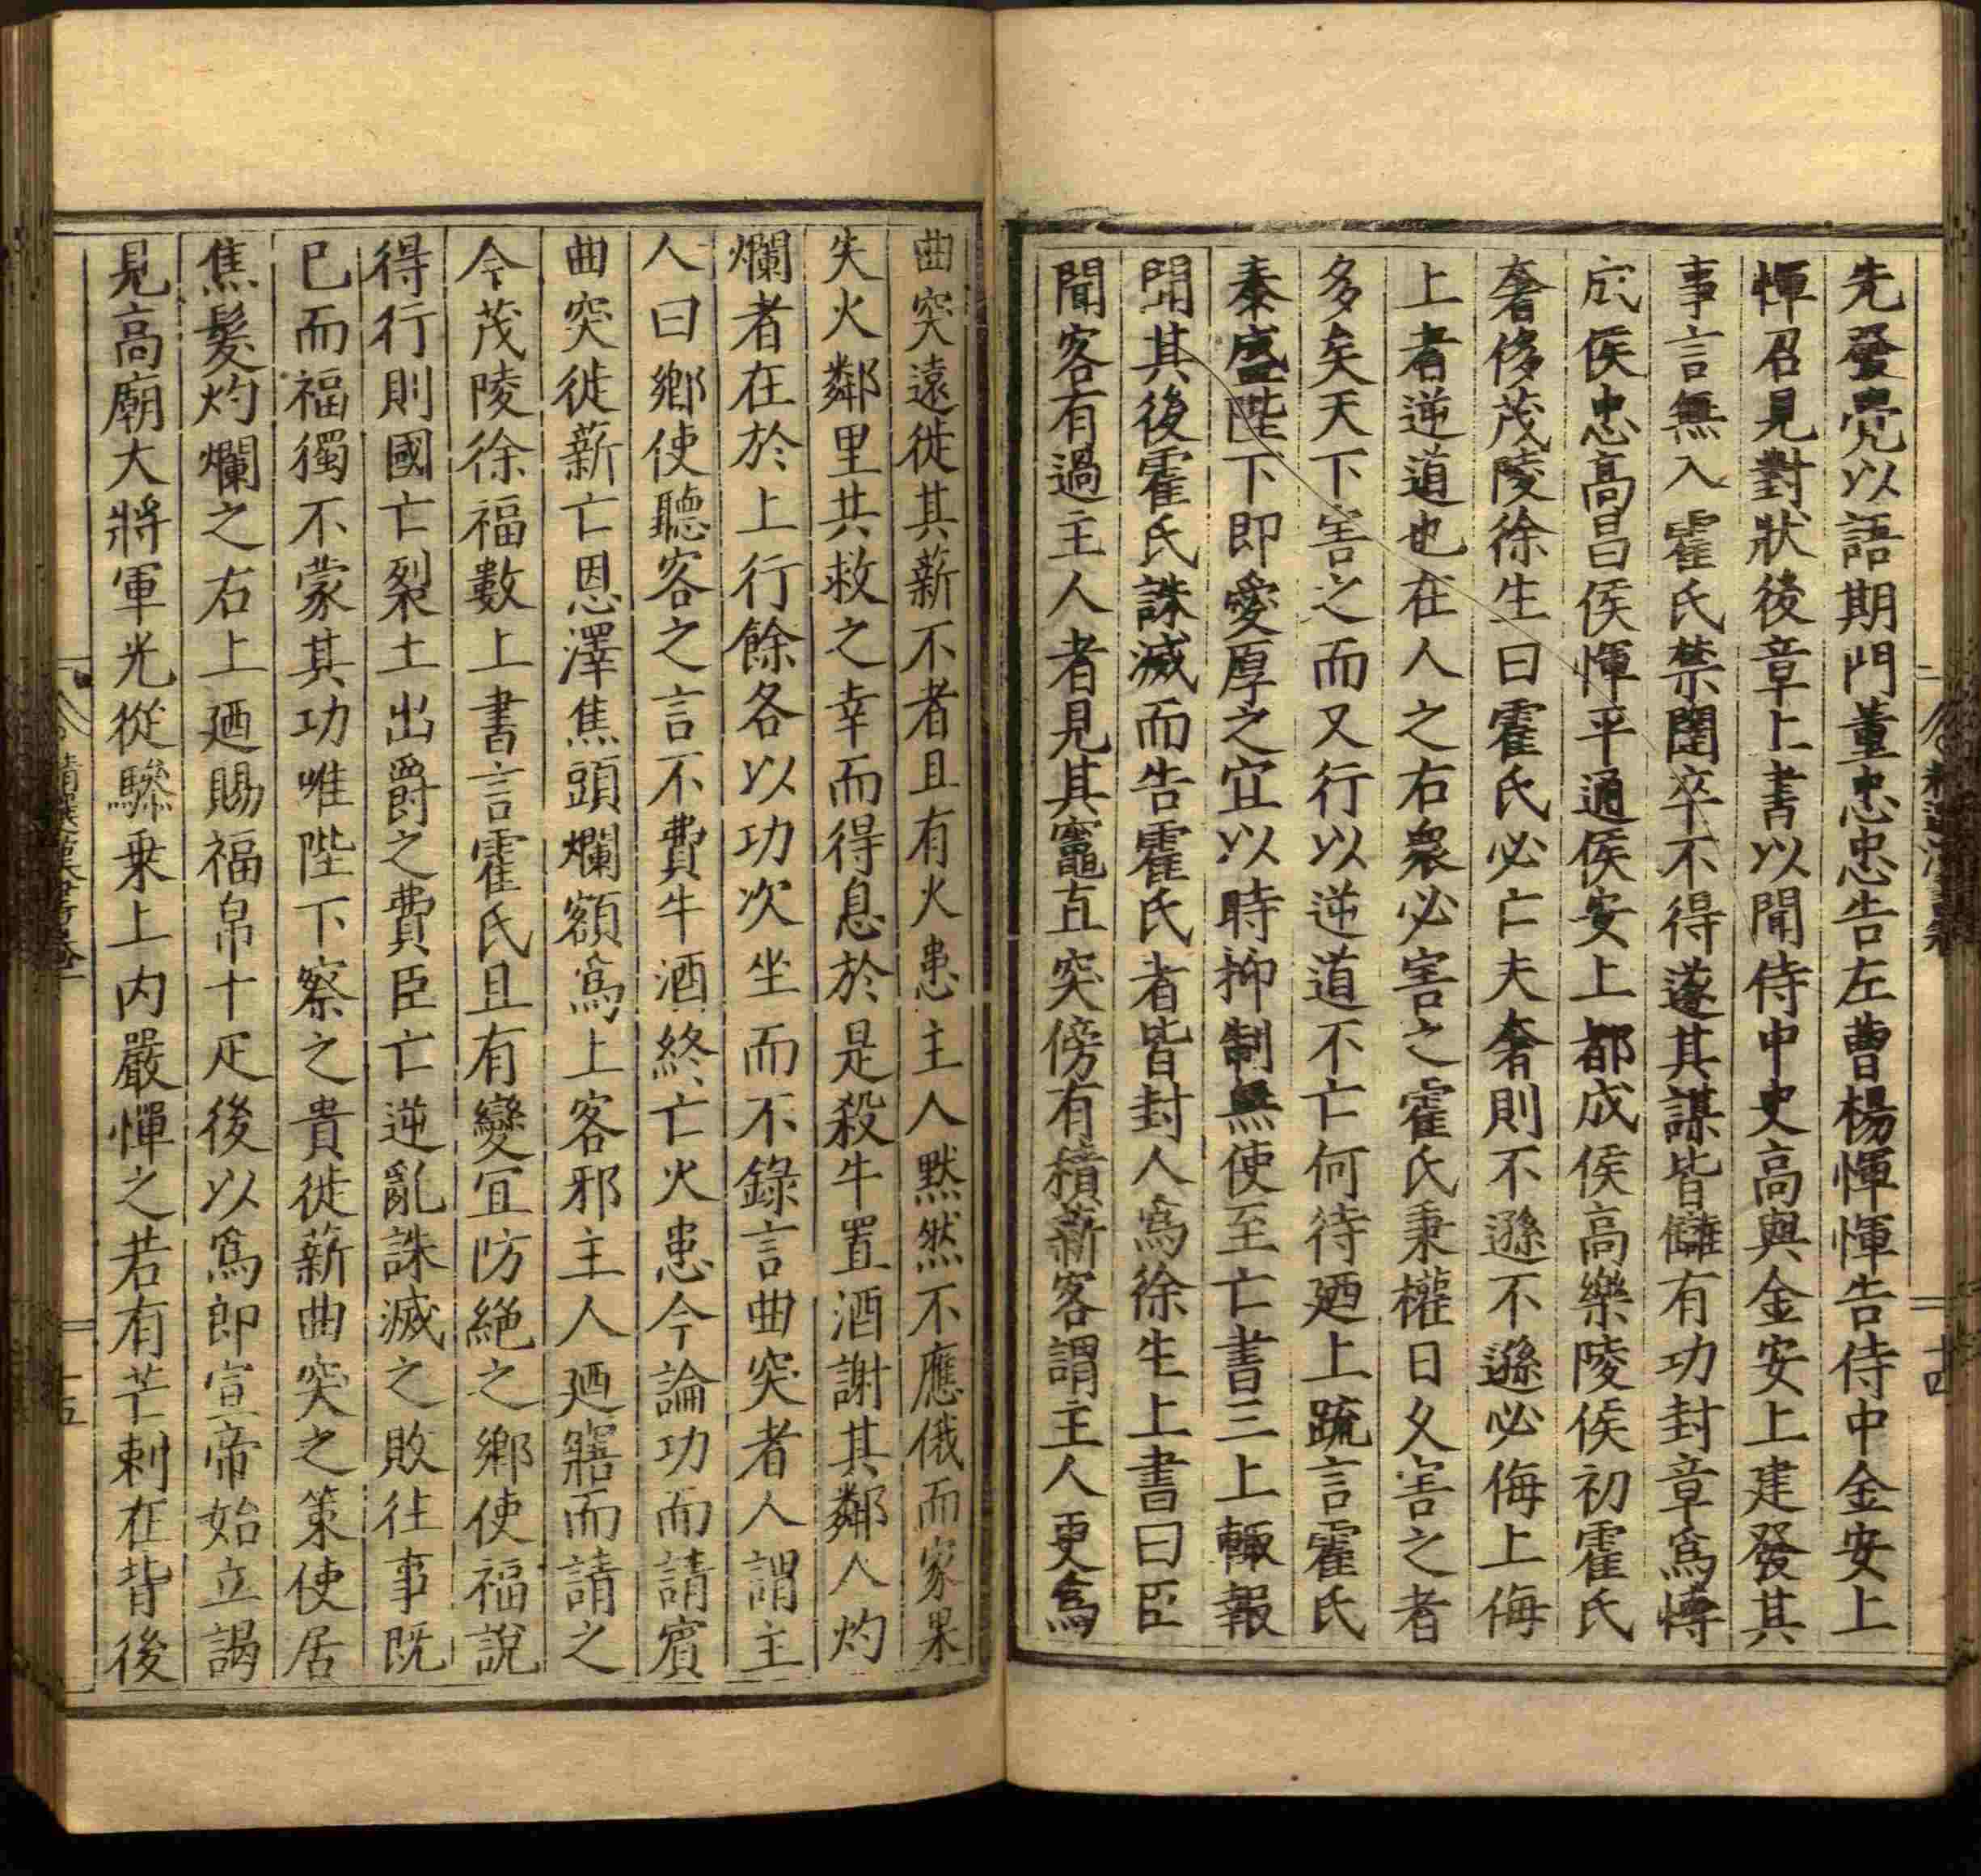 先發覺以語期門董忠忠告左曹楊惲惲告侍中金安上
惲召見對狀後章上書以聞侍中史高與金安上建發其
事言無入霍氏禁闥卒不得遂其謀皆讎有功封章爲博
成侯忠高昌侯惲平通侯安上都成侯高樂陵侯初霍氏
奢侈茂陵徐生曰霍氏必亡夫奢則不遜不遜必侮上侮
上者逆道也在人之右衆必害之霍氏秉權日久害之者
多矣天下害之而又行以逆道不亡何待廼上疏言霍氏
泰盛陛下即愛厚之宜以時抑制無使至亡書三上輒報
聞其後霍氏誅滅而告霍氏者皆封人爲徐生上書曰臣
聞客有過主人者見其竈直突傍有積薪客謂主人更爲
曲突遠徙其薪不者且有火患主人黙然不應俄而家果
失火鄰里共救之幸而得息於是殺牛置酒謝其鄰人灼
爛者在於上行餘各以功次坐而不錄言曲突者人謂主
人曰鄉使聽客之言不費牛酒終亡火患今論功而請賓
曲突徙薪亡恩澤焦頭爛額爲上客邪主人廼寤而請之
今茂陵徐福數上書言霍氏且有變宜防絶之鄉使福說
得行則國亡裂土出爵之費臣亡逆亂誅滅之敗往事既
已而福獨不蒙其功唯陛下察之貴徙薪曲突之策使居
焦髮灼爛之右上廼賜福帛十疋後以爲郎宣帝始立謁
見高廟大將軍光從驂乗上内嚴憚之若有芒刺在背後
十四
十五